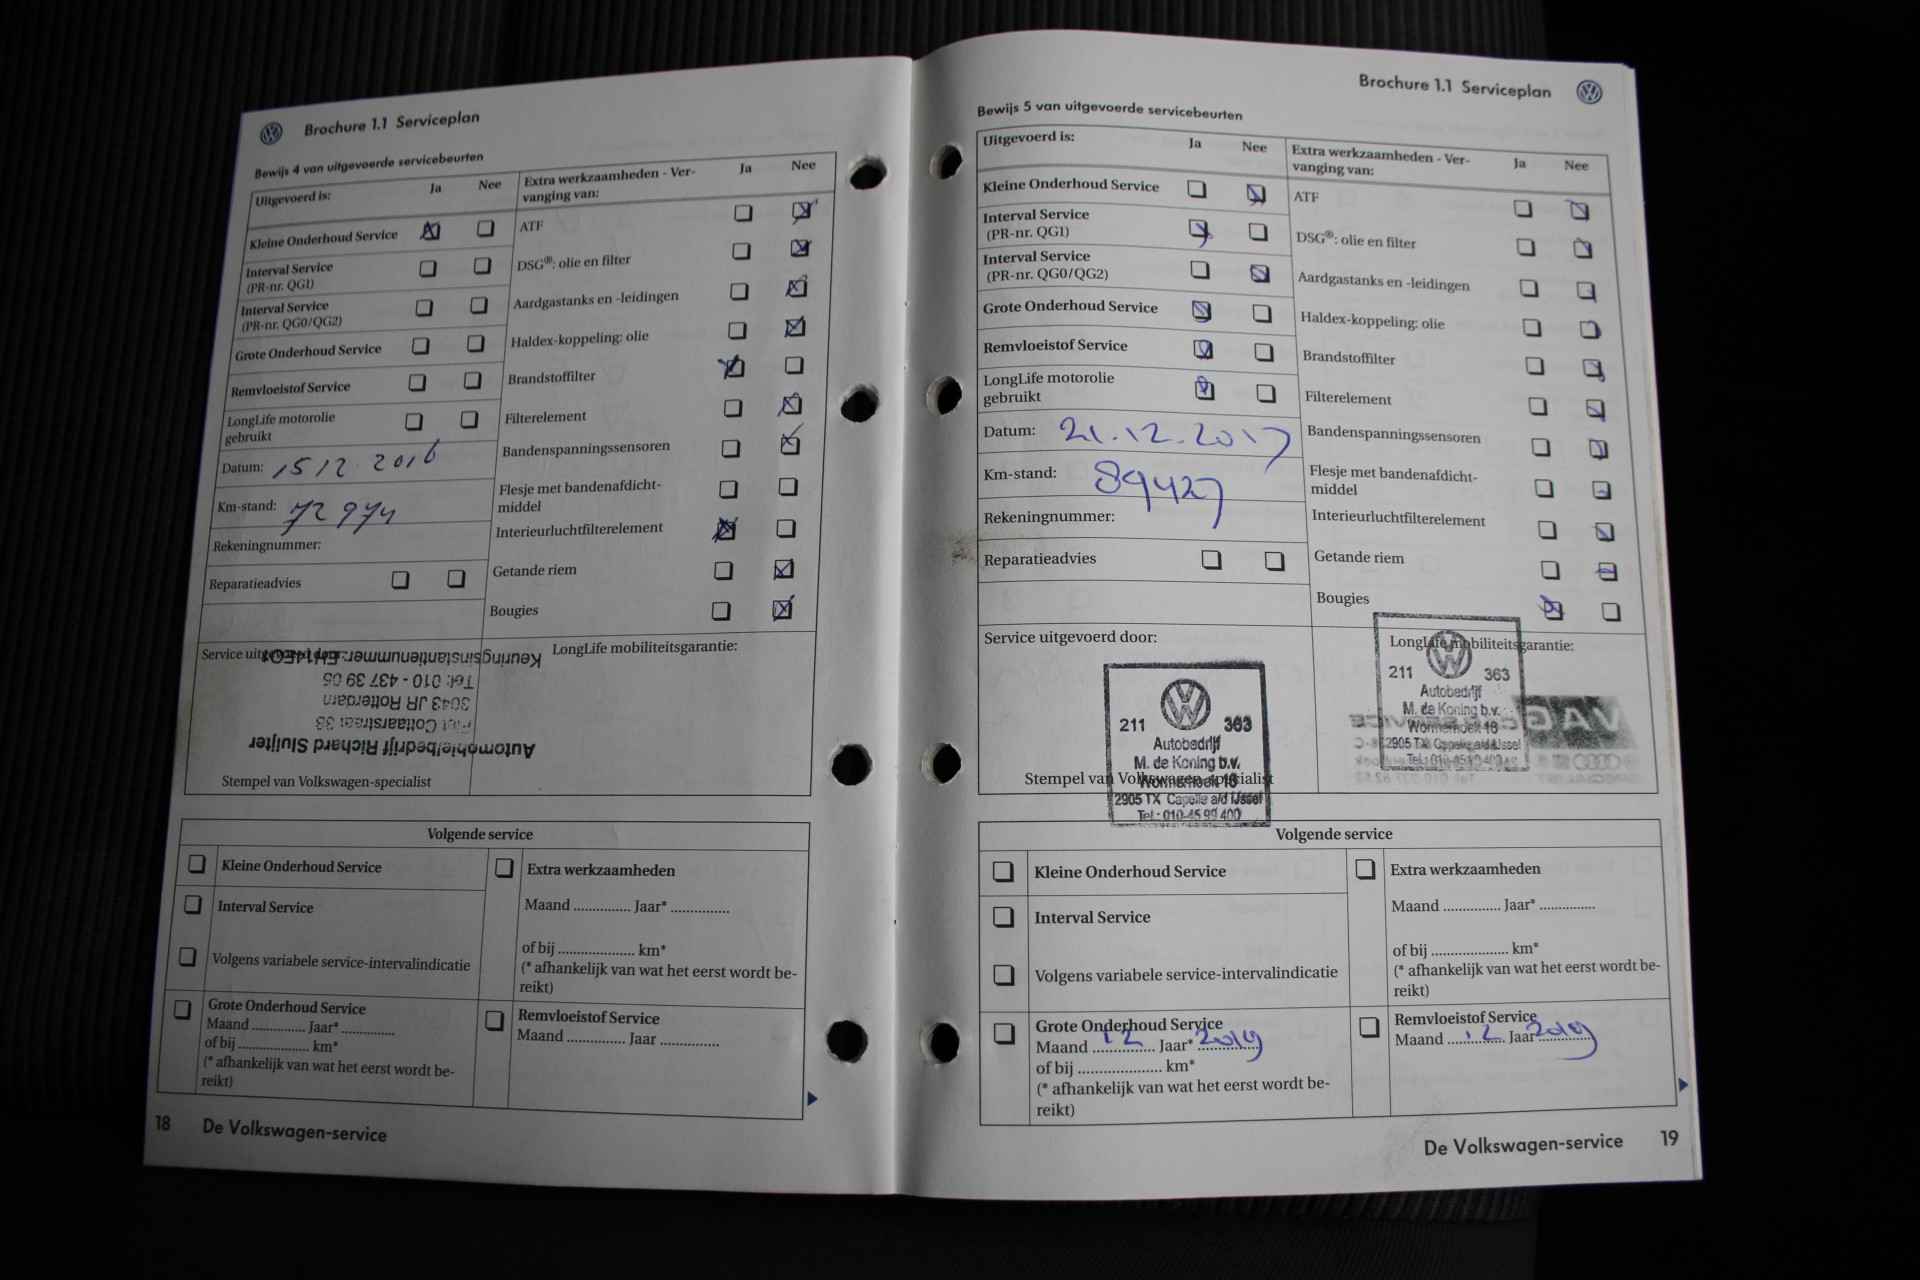 Brochure 1.1 Serviceplan
Bewijs 4 van uitgevoerde servicebeurten
Uitgevoerd is:
Ja
Nee
Kleine Onderhoud Service
Interval Service
(PR-nr. QG1)
Interval Service
(PR-nr. QG0/QG2)
Grote Onderhoud Service
Remvloeistof Service
LongLife motorolie
gebruikt
Datum: 15 12 2016
Km-stand: 72 974
Rekeningnummer:
Reparatieadvies
Extra werkzaamheden - Ver-
vanging van:
Ja
Nee
ATF
DSG®: olie en filter
Aardgastanks en -leidingen
Haldex-koppeling: olie
Brandstoffilter
Filterelement
Bandenspanningssensoren
Flesje met bandenafdicht-
middel
Interieurluchtfilterelement
Getande riem
Bougies
Service uitgevoerd door:
LongLife mobiliteitsgarantie:
Automobielbedrijf Richard Sluijter
3043 JR Rotterdam
Tel: 010 - 437 39 05
Keuringsinstantienummer:
Stempel van Volkswagen-specialist
Volgende service
Kleine Onderhoud Service
Interval Service
Volgens variabele service-intervalindicatie
Grote Onderhoud Service
Maand ............... Jaar* ...............
of bij .................... km*
(* afhankelijk van wat het eerst wordt be-
reikt)
Extra werkzaamheden
Maand ............... Jaar* ...............
of bij .................... km*
(* afhankelijk van wat het eerst wordt be-
reikt)
Remvloeistof Service
Maand ............... Jaar ...............
18 De Volkswagen-service
Brochure 1.1 Serviceplan
Bewijs 5 van uitgevoerde servicebeurten
Uitgevoerd is:
Ja
Nee
Kleine Onderhoud Service
Interval Service
(PR-nr. QG1)
Interval Service
(PR-nr. QG0/QG2)
Grote Onderhoud Service
Remvloeistof Service
LongLife motorolie
gebruikt
Datum: 21.12.2017
Km-stand: 89427
Rekeningnummer:
Reparatieadvies
Extra werkzaamheden - Ver-
vanging van:
Ja
Nee
ATF
DSG®: olie en filter
Aardgastanks en -leidingen
Haldex-koppeling: olie
Brandstoffilter
Filterelement
Bandenspanningssensoren
Flesje met bandenafdicht-
middel
Interieurluchtfilterelement
Getande riem
Bougies
Service uitgevoerd door:
211 363
Autobedrijf
M. de Koning b.v.
Wormerhoek 16
2905 TX Capelle a/d IJssel
Tel.: 010-45 99 400
Stempel van Volkswagen-specialist
LongLife mobiliteitsgarantie:
211 363
Autobedrijf
M. de Koning b.v.
Wormerhoek 16
2905 TX Capelle a/d IJssel
Tel.: 010-45 99 400
VAG
Volgende service
Kleine Onderhoud Service
Interval Service
Volgens variabele service-intervalindicatie
Grote Onderhoud Service
Maand 12 Jaar* 2019
of bij ..................... km*
(* afhankelijk van wat het eerst wordt be-
reikt)
Extra werkzaamheden
Maand ............... Jaar* ...............
of bij .................... km*
(* afhankelijk van wat het eerst wordt be-
reikt)
Remvloeistof Service
Maand 12 Jaar 2019
De Volkswagen-service 19